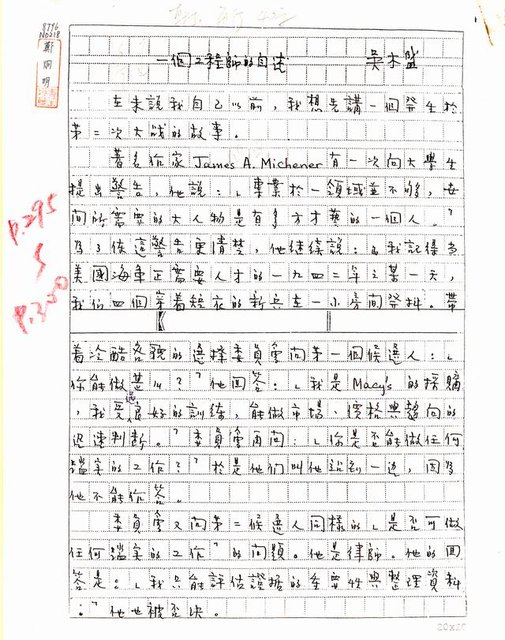 8796
N0218
鄭烱明
一個工程師的自述 吳木盛
在未說我自己以前，我想先講一個發生於
第二次大戰的故事。
著名作家James A. Michener有一次向大學生
提出警告，他說：「專業於一領域並不夠，世
間所需要的大人物是有多方才華的一個人。」
為了使這警告更清楚，他繼續說：「我記得當
美國海軍正需要人才的一九四二年之某一天，
我們四個穿着短衣的新兵在一小房間發抖。帶
p.295
p.300
着冷酷答覆的選擇委員會向第一個候選人：「
你能做甚麼？」他回答：「我是Macy's的採購
，我受過良好的訓練，能做市場、價格與趨向的
迅速判斷。」委員會再問：「你是否能做任何
踏實的工作？」於是他們叫他站到一邊，因為
他不能作答。
委員會又向第二候選人同樣的「是否可做
任何踏實的工作」的問題。他是律師。他的回
答是：「我只能評估證據的重要性與整理資料
。」他也被否決。
20x25